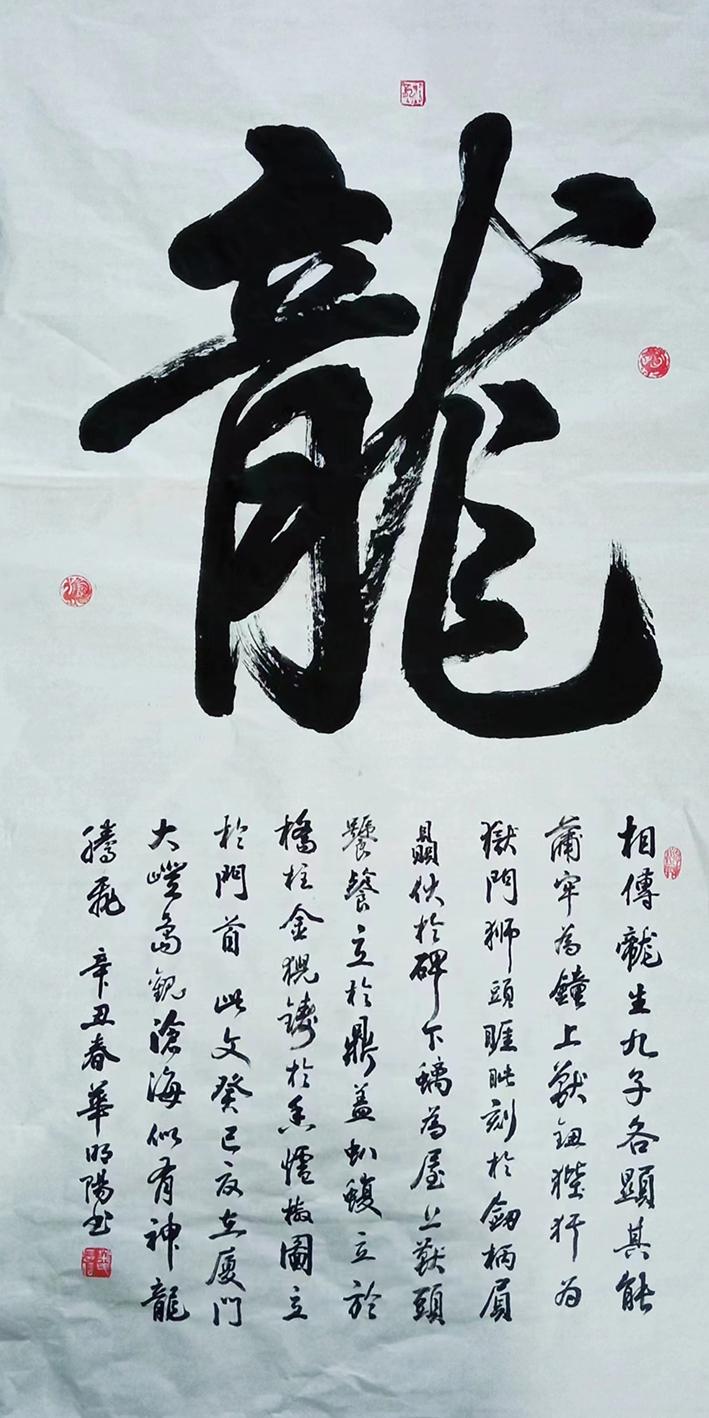 龍
相傳龍生九子各顯其能
蒲牢為鐘上獸鈕狴犴為
獄門獅頭睚眦刻於劍柄屓
贔伏於碑下螭為屋上獸頭
饕餮立於鼎蓋虯蝮立於
橋柱金猊鑄於香爐椒圖立
於門首 此文癸巳夜在廈門
大嶝島觀滄海似有神龍
騰飛 辛丑春華明陽书